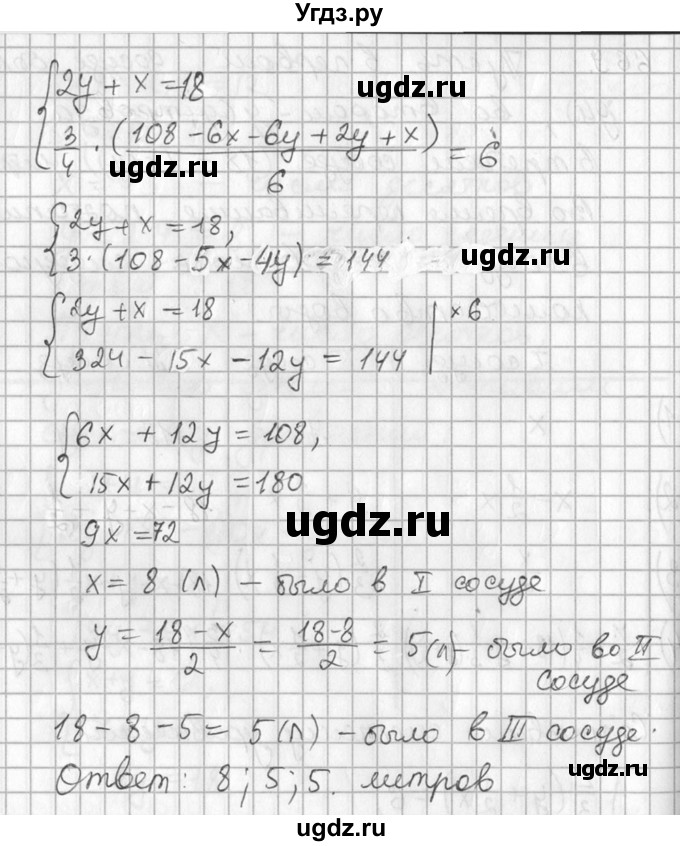 Угдз.ру
2y + x = 18
ugdz.ru
3/4 · (108 - 6x - 6y + 2y + x)/6 = 6
ugdz.ru
2y + x = 18,
3 · (108 - 5x - 4y) = 144
ugdz.ru
2y + x = 18 | × 6
324 - 15x - 12y = 144
ugdz.ru
6x + 12y = 108,
15x + 12y = 180
ugdz.ru
9x = 72
x = 8 (л) - было в I сосуде
ugdz.ru
y = (18 - x)/2 = (18 - 8)/2 = 5 (л) - было во II
сосуде
ugdz.ru
18 - 8 - 5 = 5 (л) - было в III сосуде.
Ответ: 8; 5; 5. литров
ugdz.ru
ugdz.ru